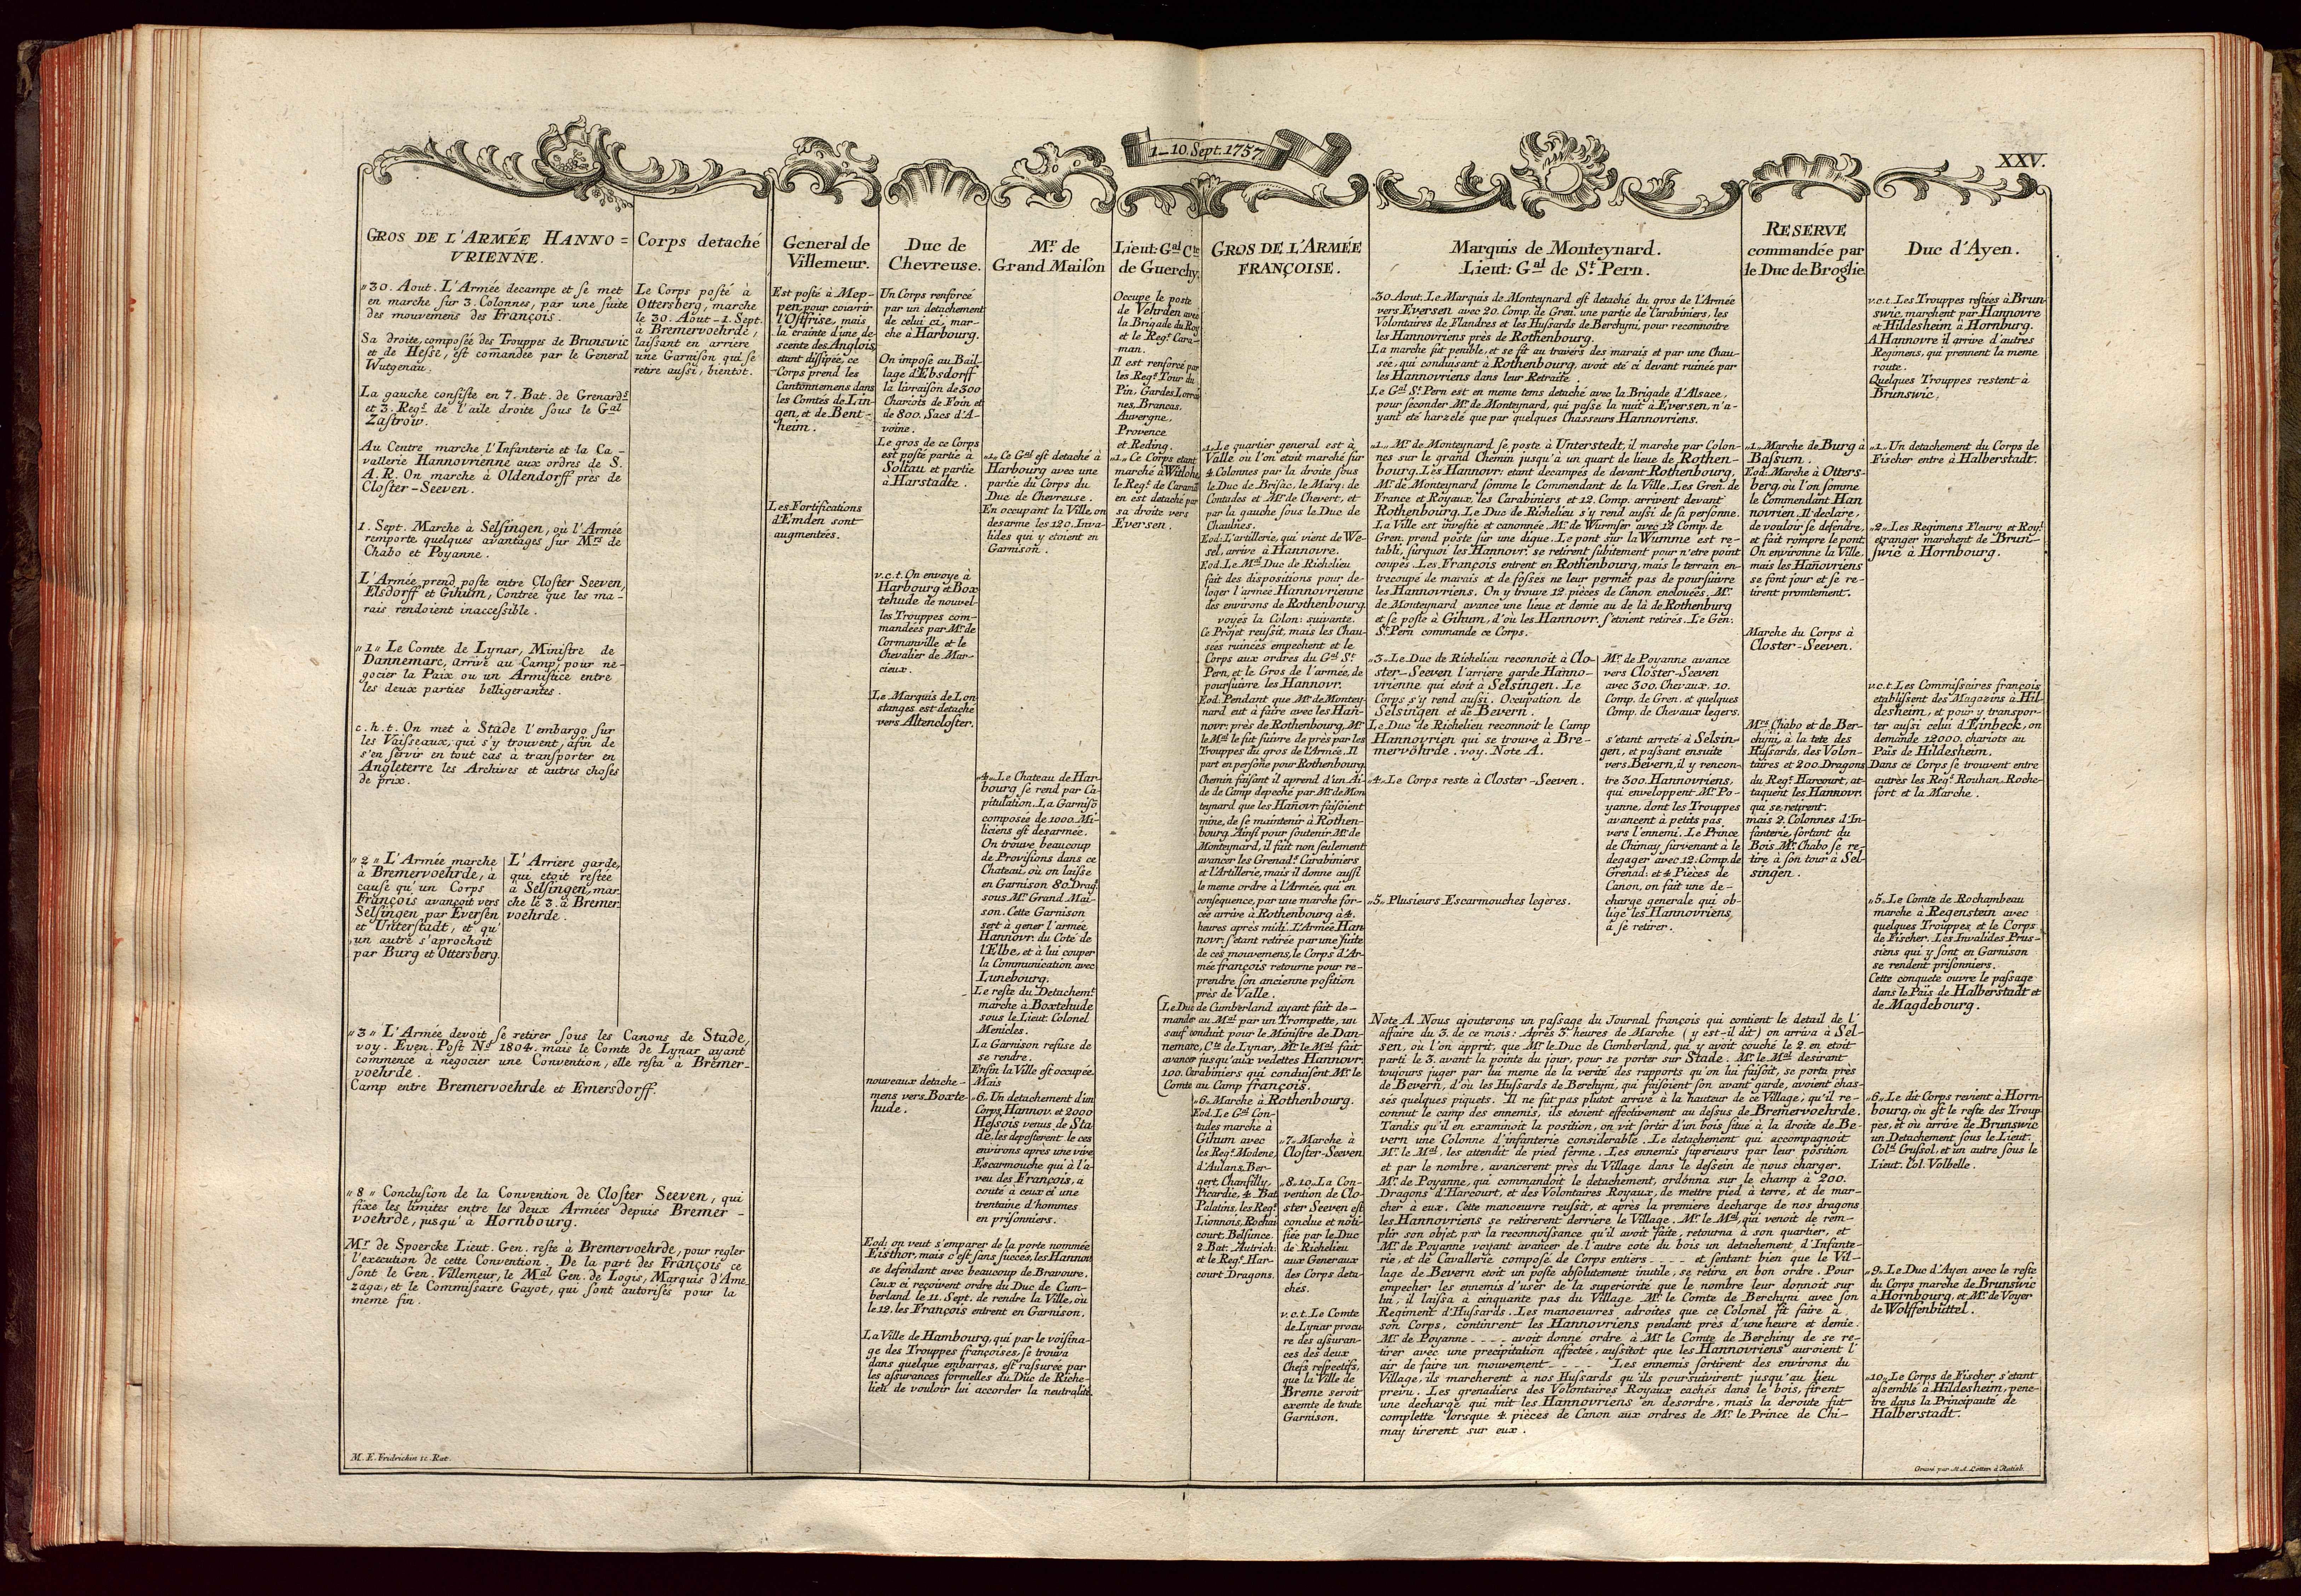 1_10. Sept. 1757.
XXV.
GROS DE L'ARMÉE HANNO=
VRIENNE.
„30. Aout. L'Armée decampe et se met
en marche sur 3. Colonnes, par une suite
des mouvemens des François.
Sa droite, composée des Trouppes de Brunswic
et de Hesse, est comandée par le General
Wutgenau.
La gauche consiste en 7. Bat. de Grenards
et 3. Regs. de l'aile droite sous le Gal
Zastrow.
Au Centre marche l'Infanterie et la Ca-
vallerie Hannovrienne aux ordres de S.
A. R. On marche à Oldendorff près de
Closter-Seeven.
1. Sept. Marche à Selsingen, où l'Armée
remporte quelques avantages sur Mrs de
Chabo et Poyanne.
L'Armée prend poste entre Closter Seeven,
Elsdorff et Gihum, Contrée que les ma-
rais rendoient inaccessible.
„1„ Le Comte de Lynar, Ministre de
Dannemarc, arrive au Camp, pour ne-
gocier la Paix ou un Armistice entre
les deux parties belligerantes.
c.h.t. On met à Stade l'embargo sur
les Vaisseaux, qui s'y trouvent, afin de
s'en servir en tout cas à transporter en
Angleterre les Archives et autres choses
de prix.
„2„ L'Armée marche
à Bremervoehrde, à
cause qu'un Corps
François avançoit vers
Selsingen par Eversen
et Unterstadt, et qu'
un autre s'aprochoit
par Burg et Ottersberg.
L'Arriere garde,
qui etoit restée
à Selsingen, mar-
che le 3. à Bremer-
voehrde.
„3„ L'Armée devoit se retirer sous les Canons de Stade,
voy. Even. Post No. 1804. mais le Comte de Lynar ayant
commencé à negocier une Convention, elle resta à Bremer-
voehrde.
Camp entre Bremervoehrde et Emersdorff.
„8„ Conclusion de la Convention de Closter Seeven, qui
fixe les limites entre les deux Armées depuis Bremer-
voehrde, jusqu'à Hornbourg.
Mr de Spoercke Lieut. Gen. reste à Bremervoehrde, pour regler
l'execution de cette Convention. De la part des François ce
sont le Gen. Villemeur, le Mal Gen. de Logis, Marquis d'Ame
zaga, et le Commissaire Gayot, qui sont autorisés pour la
meme fin.
M. F. Fridrichin sc. Rat.
Corps detaché
Le Corps posté à
Ottersberg, marche
le 30. Aout-1. Sept.
à Bremervoehrde,
laissant en arriere
une Garnison qui se
retire aussi, bientot.
General de
Villemeur.
Est posté à Mep-
pen, pour couvrir
l'Ostfrise, mais
la crainte d'une de-
scente des Anglois
etant dissipée, ce
Corps prend les
Cantonnemens dans
les Comtés de Lin-
gen, et de Bent-
heim.
Les Fortifications
d'Emden sont
augmentées.
Duc de
Chevreuse.
Un Corps renforcé
par un detachement
de celui ci, mar-
che à Harbourg.
On impose au Bail-
lage d'Ebsdorff
la livraison de 300
Chariots de Foin et
de 800. Sacs d'A-
voine.
Le gros de ce Corps
est posté partie à
Soltau et partie
à Harstadte.
v.c.t. On envoye à
Harbourg et Box
tehude de nouvel-
les Trouppes com-
mandées par Mr. de
Cormanville et le
Chevalier de Mar-
cieux.
Le Marquis de Lon
stanges est detaché
vers Altencloster.
nouveaux detache-
mens vers Boxte-
hude.
Mr de
Grand Maison
„1„ Ce Gal est detaché à
Harbourg avec une
partie du Corps du
Duc de Chevreuse.
En occupant la Ville, on
desarme les 120. Inva-
lides qui y etoient en
Garnison.
„4„ Le Chateau de Har-
bourg se rend par Ca-
pitulation. La Garniso
composée de 1000. Mi-
liciens est desarmée.
On trouve beaucoup
de Provisions dans ce
Chateau, où on laisse
en Garnison 80. Drag.
sous Mr. Grand Mai-
son. Cette Garnison
sert à gener l'armée
Hannovr. du Coté de
l'Elbe, et à lui couper
la Communication avec
Lunebourg.
Le reste du Detachemt
marche à Boxtehude
sous le Lieut. Colonel
Menicles.
La Garnison refuse de
se rendre.
Enfin la Ville est occupée.
Mais
„6. Un detachement d'un
Corps Hannov. et 2000
Hessois venus de Sta
de, les deposterent le ces
environs après une vive
Escarmouche qui à l'a-
veu des François, a
couté à ceux ci une
trentaine d'hommes
en prisonniers.
Eod: on veut s'emparer de la porte nommée
Eisthor, mais c'est sans succes, les Hannov
se defendant avec beaucoup de Bravoure.
Ceux ci reçoivent ordre du Duc de Cum-
berland le 11. Sept. de rendre la Ville, où
le 12. les François entrent en Garnison.
La Ville de Hambourg, qui par le voisina-
ge des Trouppes françoises, se trouva
dans quelque embarras, est rassurée par
les assurances formelles du Duc de Riche-
lieu de vouloir lui accorder la neutralité.
Lieut: Gal Cte
de Guerchy.
Occupe le poste
de Vehrden avec
la Brigade du Roy
et le Regt. Cara-
man.
Il est renforcé par
les Regs. Tour du
Pin, Gardes Lorrai-
nes, Brancas,
Auvergne,
Provence
et Reding.
„1„ Ce Corps etant
marché à Witlohe,
le Regt. de Caraman
en est detaché par
sa droite vers
Eversen.
GROS DE L'ARMÉE
FRANÇOISE.
„1„ Le quartier general est à
Valle où l'on etoit marché sur
4. Colonnes par la droite sous
le Duc de Brisac, le Marq: de
Contades et Mr. de Chevert, et
par la gauche sous le Duc de
Chaulnes.
Eod: L'artillerie, qui vient de We-
sel, arrive à Hannovre.
Eod. Le Mal Duc de Richelieu
fait des dispositions pour de-
loger l'armée Hannovrienne
des environs de Rothenbourg.
voyés la Colon: suivante.
Ce Projet reussit, mais les Chau-
sées ruinées empechent et le
Corps aux ordres du Gal St.
Pern, et le Gros de l'armée, de
poursuivre les Hannovr.
Eod: Pendant que Mr. de Montey
nard eut à faire avec les Han-
novr: près de Rothenbourg, Mr.
le Mal le fit suivre de près par les
Trouppes du gros de l'Armée. Il
part en persone pour Rothenbourg.
Chemin faisant il aprend d'un Ai-
de de Camp depeché par Mr. de Mon
teynard que les Hanovr. faisoient
mine, de se maintenir à Rothen-
bourg. Ainsi pour soutenir Mr. de
Monteynard, il fait non seulement
avancer les Grenads. Carabiniers
et l'Artillerie, mais il donne aussi
le meme ordre à l'Armée, qui en
consequence, par une marche for-
cée arrive à Rothenbourg à 4.
heures après midi. L'Armée Han
novr: s'etant retirée par une suite
de ces mouvemens, le Corps d'Ar-
mée françois retourne pour re-
prendre son ancienne position
près de Valle.
Le Duc de Cumberland ayant fait de-
mander au Mal par un Trompette, un
sauf conduit pour le Ministre de Dan-
nemarc, Cte de Lynar, Mr. le Mal fait
avancer jusqu'aux vedettes Hannovr.
100. Carabiniers qui conduisent Mr. le
Comte au Camp françois.
„6„ Marche à Rothenbourg.
Eod. Le Gal Con-
tades marche à
Gihum avec
les Regs. Modene,
d'Aulans, Ber-
gert, Chantilly,
Picardie, 4. Bat.
Palatins, les Regs.
Lionnois, Rochai
court, Belsunce.
2. Bat. Autrich.
et le Regt. Har-
court Dragons.
„7„ Marche à
Closter-Seeven
„8.-10. La Con-
vention de Clo-
ster Seeven est
conclue et noti-
fiée par le Duc
de Richelieu
aux Generaux
des Corps deta-
chés.
v.c.t. Le Comte
de Lynar procu-
re des assuran-
ces des deux
Chefs respectifs,
que la Ville de
Breme seroit
exemte de toute
Garnison.
Marquis de Monteynard.
Lieut: Gal de St. Pern.
„30. Aout. Le Marquis de Monteynard est detaché du gros de l'Armée
vers Eversen avec 20. Comp. de Gren. une partie de Carabiniers, les
Volontaires de Flandres et les Hussards de Berchyni, pour reconnoitre
les Hannovriens près de Rothenbourg.
La marche fut penible, et se fit au travers des marais et par une Chau-
sée, qui conduisant à Rothenbourg, avoit eté ci devant ruinée par
les Hannovriens dans leur Retraite.
Le Gal St. Pern est en meme tems detaché avec la Brigade d'Alsace,
pour seconder Mr. de Monteynard, qui passe la nuit à Eversen, n'a-
yant eté harzelé que par quelques Chasseurs Hannovriens.
„1„ Mr. de Monteynard se poste à Unterstedt, il marche par Colon-
nes sur le grand Chemin jusqu'à un quart de lieue de Rothen-
bourg. Les Hannovr: etant decampés de devant Rothenbourg,
Mr. de Monteynard somme le Commendant de la Ville. Les Gren. de
France et Royaux, les Carabiniers et 12. Comp. arrivent devant
Rothenbourg. Le Duc de Richelieu s'y rend aussi de sa personne.
La Ville est investie et canonnée. Mr. de Wurmser avec 12 Comp. de
Gren. prend poste sur une digue. Le pont sur la Wumme est re-
tabli, surquoi les Hannovr. se retirent subitement pour n'etre point
coupés. Les François entrent en Rothenbourg, mais le terrain en-
trecoupé de marais et de fosses ne leur permet pas de poursuivre
les Hannovriens. On y trouve 12. pièces de Canon enclouées. Mr.
de Monteynard avance une lieue et demie au de là de Rothenburg
et se poste à Gihum, d'où les Hannovr. s'etoient retirés. Le Gen.
St. Pern commande ce Corps.
„3„ Le Duc de Richelieu reconnoit à Clo-
ster-Seeven l'arriere garde Hanno-
vrienne qui etoit à Selsingen. Le
Corps s'y rend aussi. Occupation de
Selsingen et de Bevern.
Le Duc de Richelieu reconnoit le Camp
Hannovrien qui se trouve à Bre-
mervöhrde. voy. Note A.
„4„ Le Corps reste à Closter-Seeven.
„5„ Plusieurs Escarmouches legères.
Mr. de Poyanne avance
vers Closter-Seeven
avec 300. Chevaux. 10.
Comp. de Gren. et quelques
Comp. de Chevaux legers.
s'etant arreté à Selsin-
gen, et passant ensuite
vers Bevern, il y rencon-
tre 300. Hannovriens,
qui enveloppent Mr. Po-
yanne, dont les Trouppes
avancent à petits pas
vers l'ennemi. Le Prince
de Chimay survenant à le
degager avec 12. Comp. de
Grenad: et 4 Pièces de
Canon, on fait une de-
charge generale qui ob-
lige les Hannovriens
à se retirer.
Note A. Nous ajouterons un passage du Journal françois qui contient le detail de l'
affaire du 3. de ce mois: Après 3. heures de Marche (y est-il dit) on arriva à Sel-
sen, où l'on apprit, que Mr. le Duc de Cumberland, qui y avoit couché le 2. en etoit
parti le 3. avant la pointe du jour, pour se porter sur Stade. Mr. le Mal desirant
toujours juger par lui meme de la verité des rapports qu'on lui faisoit, se porta près
de Bevern, d'où les Hussards de Berchyni, qui faisoient son avant garde, avoient chas-
sés quelques piquets. Il ne fut pas plutot arrivé à la hauteur de ce Village, qu'il re-
connut le camp des ennemis, ils etoient effectivement au dessus de Bremervoehrde.
Tandis qu'il en examinoit la position, on vit sortir d'un bois situé à la droite de Be-
vern une Colonne d'infanterie considerable. Le detachement qui accompagnoit
Mr. le Mal, les attendit de pied ferme. Les ennemis superieurs par leur position
et par le nombre, avancerent près du Village dans le dessein de nous charger.
Mr. de Poyanne, qui commandoit le detachement, ordonna sur le champ à 200.
Dragons d'Harcourt, et des Volontaires Royaux, de mettre pied à terre, et de mar-
cher à eux. Cette manoeuvre reussit, et après la premiere decharge de nos dragons
les Hannovriens se retirerent derriere le Village. Mr. le Mal, qui venoit de rem-
plir son objet par la reconnoissance qu'il avoit faite, retourna à son quartier, et
Mr. de Poyanne voyant avancer de l'autre coté du bois un detachement d'Infante-
rie, et de Cavallerie composé de Corps entiers - - - - et sentant bien que le Vil-
lage de Bevern etoit un poste absolutement inutile, se retira en bon ordre. Pour
empecher les ennemis d'user de la superiorité que le nombre leur donnoit sur
lui, il laissa à cinquante pas du Village Mr. le Comte de Berchyni avec son
Regiment d'Hussards. Les manoeuvres adroites que ce Colonel fit faire à
son Corps, continrent les Hannovriens pendant près d'une heure et demie.
Mr. de Poyanne - - - - avoit donné ordre à Mr. le Comte de Berchiny de se re-
tirer avec une precipitation affectée, aussitot que les Hannovriens auroient l'
air de faire un mouvement - - - - Les ennemis sortirent des environs du
Village, ils marcherent à nos Hussards qu'ils poursuivirent jusqu'au lieu
prevu. Les grenadiers des Volontaires Royaux cachés dans le bois, firent
une decharge qui mit les Hannovriens en desordre, mais la deroute fut
complette lorsque 4. pièces de Canon aux ordres de Mr. le Prince de Chi-
may tirerent sur eux.
RESERVE
commandée par
le Duc de Broglie
„1„ Marche de Burg à
Bassum.
Eod: Marche à Otters-
berg, où l'on somme
le Commendant Han
novrien. Il declare,
de vouloir se defendre,
et fait rompre le pont.
On environne la Ville.
mais les Hanovriens
se font jour et se re-
tirent promtement.
Marche du Corps à
Closter-Seeven.
Mrs. Chabo et de Ber-
chyni, à la tete des
Hussards, des Volon-
taires et 200 Dragons
du Regt. Harcourt, at-
taquent les Hannovr.
qui se retirent.
mais 2. Colonnes d'In-
fanterie, sortant du
Bois Mr. Chabo se re-
tire à son tour à Sel-
singen.
Duc d'Ayen.
v.c.t. Les Trouppes restées à Brun
swic, marchent par Hannovre
et Hildesheim à Hornburg.
A Hannovre il arrive d'autres
Regimens, qui prennent la meme
route.
Quelques Trouppes restent à
Brunswic.
„1„ Un detachement du Corps de
Fischer entre à Halberstadt.
„2„ Les Regimens Fleury et Royl.
etranger marchent de Brun-
swic à Hornbourg.
v.c.t. Les Commissaires françois
etablissent des Magazins à Hil-
desheim, et pour y transpor-
ter aussi celui d'Einbeck, on
demande 12000. chariots au
Païs de Hildesheim.
Dans ce Corps se trouvent entre
autrès les Regs. Rouhan-Roche-
fort et la Marche.
„5„ Le Comte de Rochambeau
marche à Regenstein avec
quelques Trouppes et le Corps
de Fischer. Les Invalides Prus-
siens qui y sont en Garnison
se rendent prisonniers.
Cette conquete ouvre le passage
dans le Païs de Halberstadt et
de Magdebourg.
„6„ Le dit Corps revient à Horn-
bourg, où est le reste des Troup-
pes, et où arrive de Brunswic
un Detachement sous le Lieut.
Coll. Crussol, et un autre sous le
Lieut. Col. Volbelle.
„9„ Le Duc d'Ayen avec le reste
du Corps marche de Brunswic
à Hornbourg, et Mr. de Voyer
de Wolffenbüttel.
„10„ Le Corps de Fischer s'etant
assemblé à Hildesheim, pene-
tre dans la Principauté de
Halberstadt.
Gravé par M. A. Lotter à Ratisb.